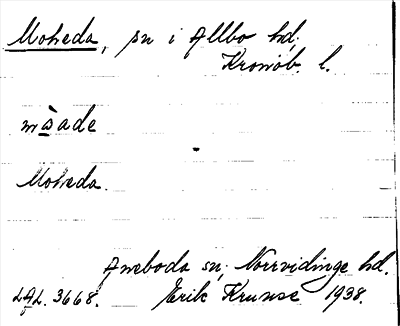 Moheda, sn i Allbo hd.
Kronob. l.
måade
Moheda.
Aneboda sn, Norrvidinge hd.
Erik Krunse 1938.